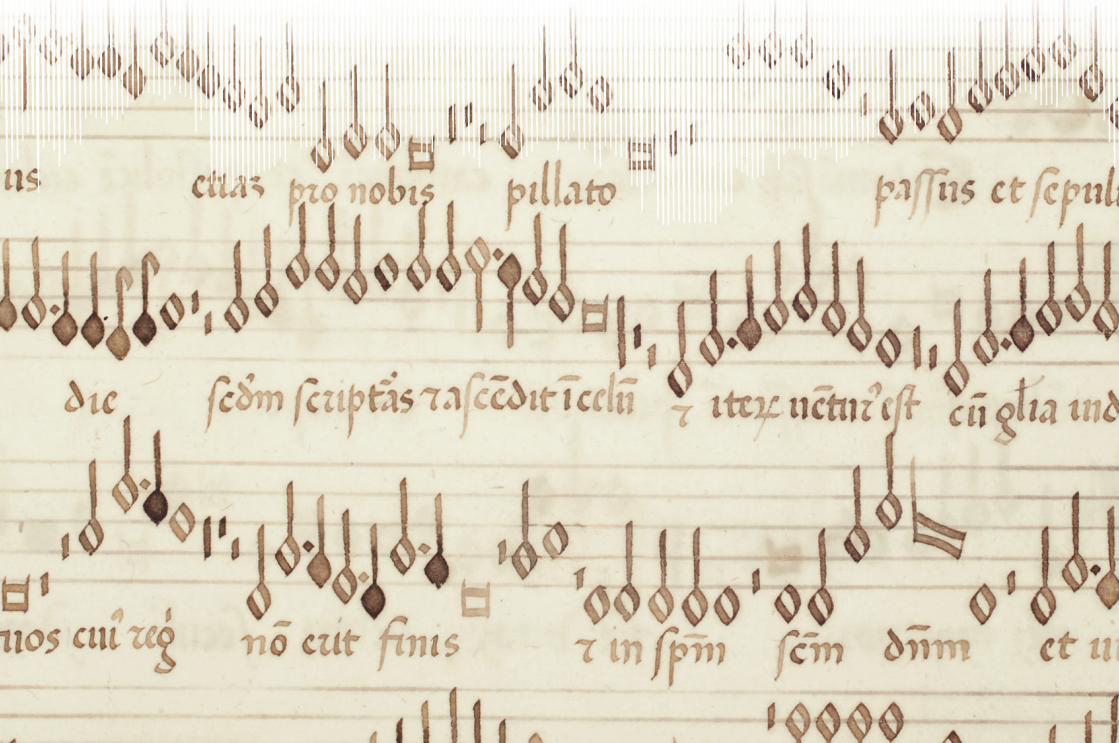 us etiaz pro nobis pillato passus et sepul
die scdm scriptas ⁊ ascēdit ī celū ⁊ iteꝝ uētur' est cū glia ind
tuos cui' reg nō erit finis ⁊ in spm̄ scm̄ dnm̄ et ui